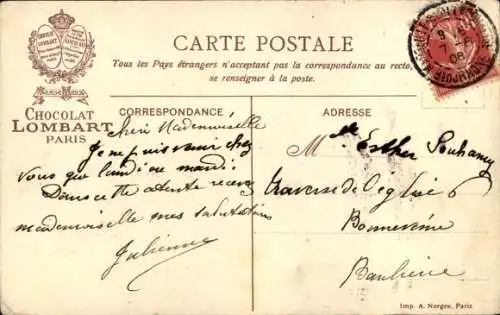 CARTE POSTALE
Tous les Pays étrangers n'acceptant pas la correspondance au recto,
se renseigner à la poste.
CHOCOLAT
LOMBART
PARIS
CORRESPONDANCE
chère Mademoiselle
Je ne puis venir chez
vous que lundi ou mardi
Dans cette attente recevez
mademoiselle mes salutations
Julienne
ADRESSE
Mlle Esther
traverse de l'eglise 6
Bonneveine
Banlieue
Imp. A. Norgeu, Paris